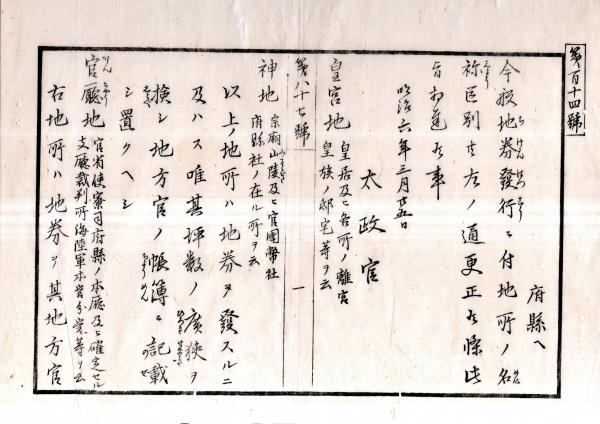 第百十四號
府縣ヘ
今般地券發行ニ付地所ノ名
称區別共左ノ通更正候條此
旨相達候事
明治六年三月廿五日
太政官
皇宮地 皇居及ヒ各所ノ離宮
皇族ノ邸宅等ヲ云
第八十七號
一
神地 宗廟山陵及ヒ官國幣社
府縣社ノ在ル所ヲ云
以上ノ地所ハ地券ヲ發スルニ
及ハス唯其坪数ノ廣狹ヲ
検シ地方官ノ帳簿ニ記載
シ置クヘシ
官廳地 官省使寮司府縣ノ本廳及ヒ確定セル
支廳裁判所海陸軍本分営等ヲ云
右地所ハ地券ヲ其地方官